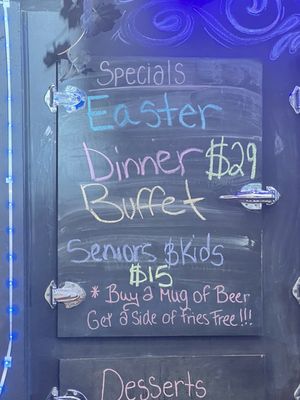 Specials
Easter
Dinner $29
Buffet
Seniors $Kids
$15
* Buy a Mug of Beer
Get a Side of fries Free!!!
Desserts